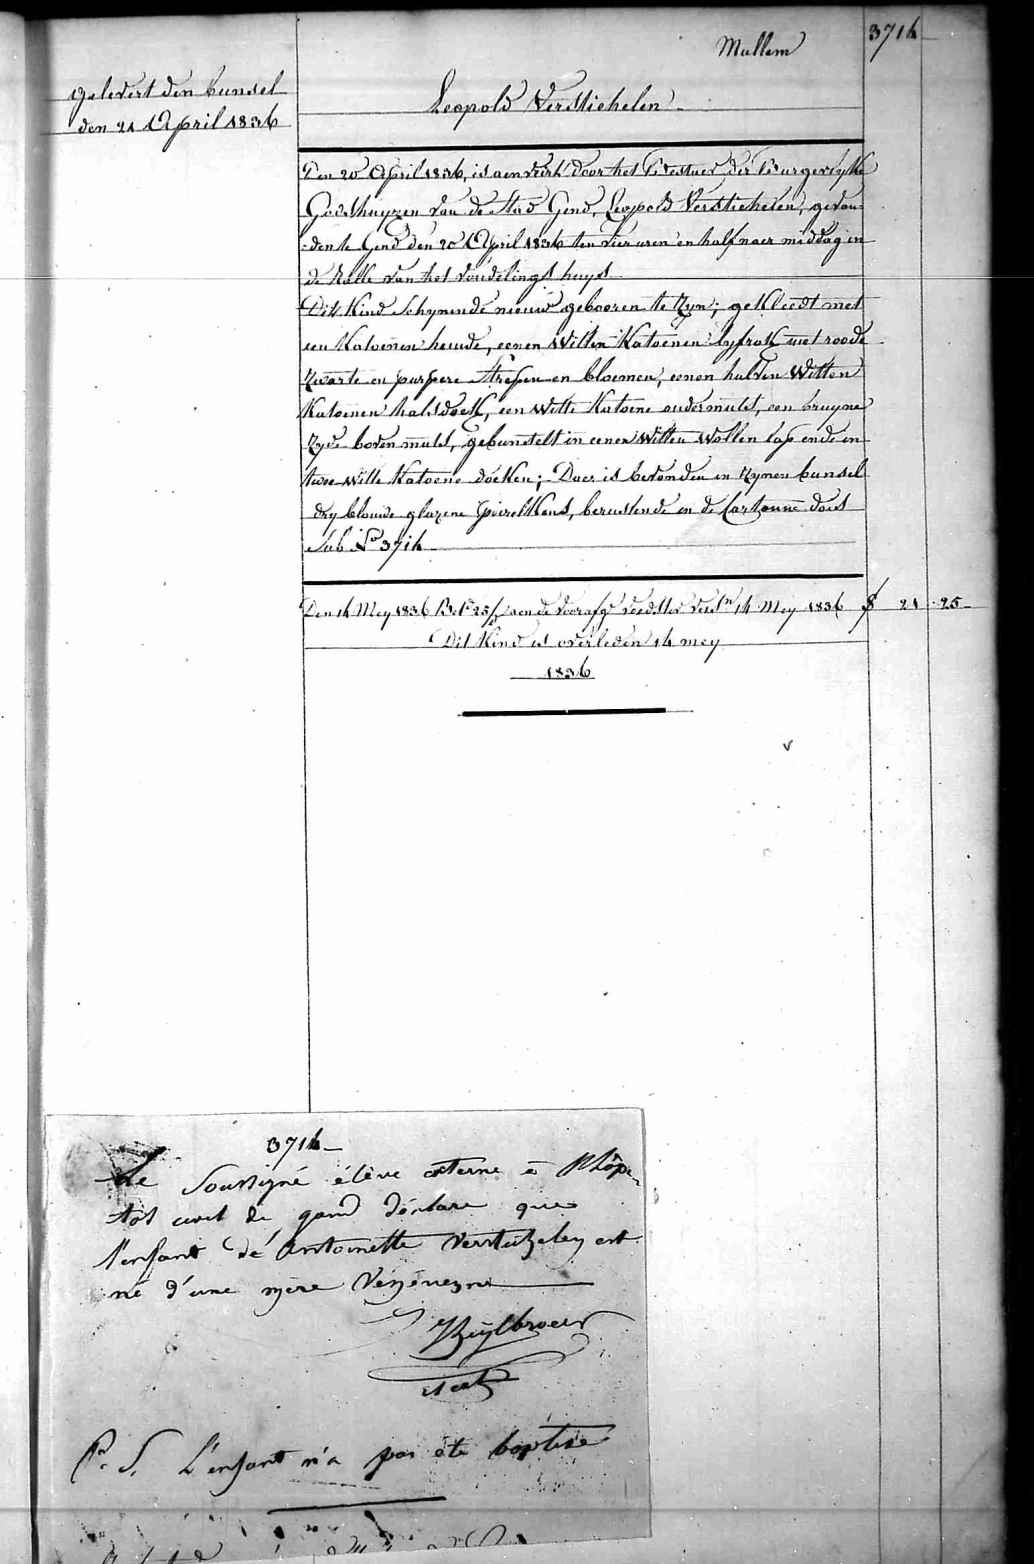 3714
Mullem
gelevert den bunsel
den 21 April 1836
Leopold Verstichelen
Den 20 April 1836, is aenveird door het Bestuer der Burgerlyke
Godshuyzen van de stad Gend, Leopold Verstichelen, gevon-
den te Gend den 20 April 1836 ten vier uren en half naer middag in
de Rolle van het Vondelings huys
Dit Kind Schynende nieuw gebooren te Zyn; gekleedt met
een Katoenen hemde, eenen Witten Katoenen lyfrok met roode
Zwarte en purpere Strepen en bloemen, eenen halven Witten
Katoenen halsdoek, een Witte Katoene ondermuts, een bruyne
Zyde boven muts, gebunselt in eenen Witten Wollen lap ende in
twee Witte Katoene doeken; Daer is bevonden in Zynen bunsel
dry blauwe glazene peirelkens, berustende in de Cartonne doos
Sub No 3714
Den 14 Mey 1836 aen de Voedster 14 Mey 1836 21 25
Dit Kind is overleden 14 mey
1836
3714
Le Soussigné élève externe à l'hôpi-
tal civil de gand déclare que
l'enfant de Antoinette Verstichelen est
né d'une mère Vénérienne
P. S. L'enfant n'a pas été baptisé